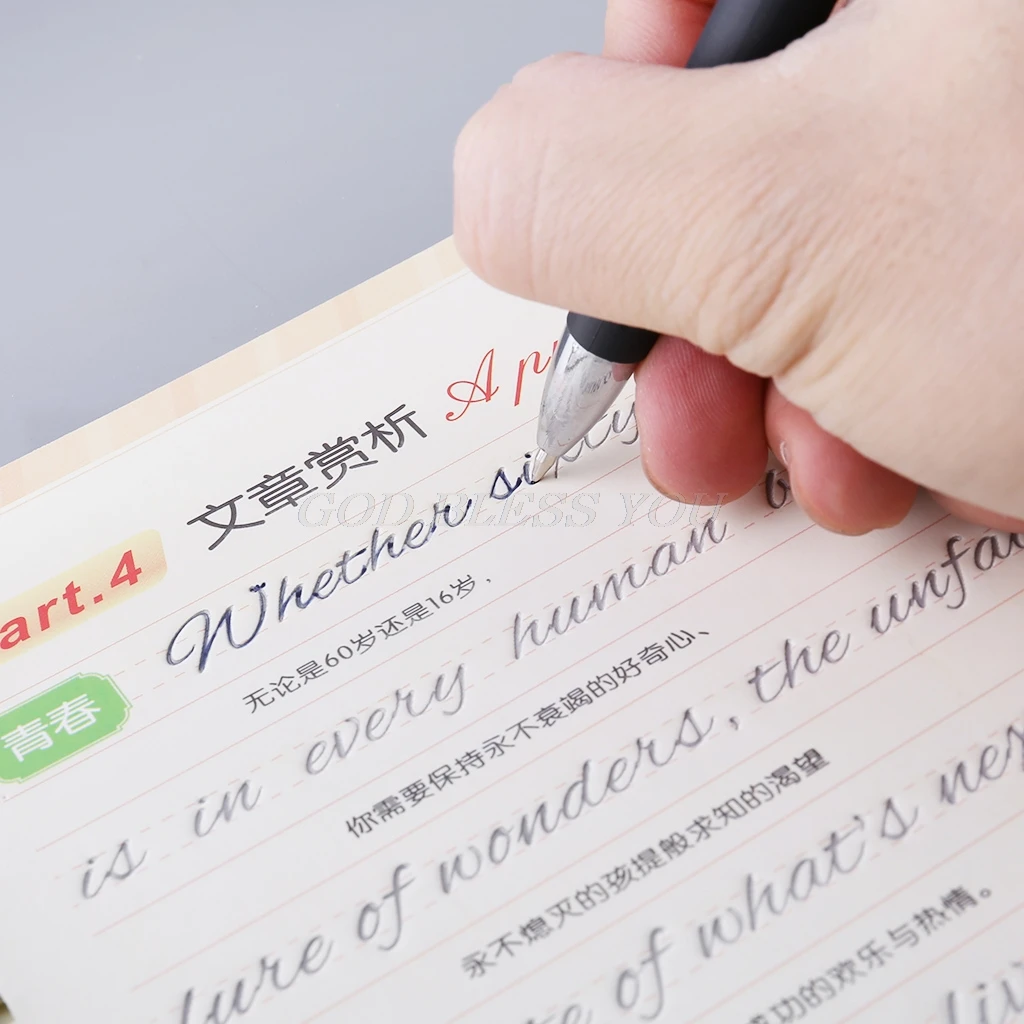 文章赏析 Ap
art.4
GOD BLESS YOU
Whether sixty
无论是60岁还是16岁，
青春
is in every human b
你需要保持永不衰竭的好奇心、
lure of wonders, the unfai
永不熄灭的孩提般求知的渴望
of what's nex
成功的欢乐与热情。